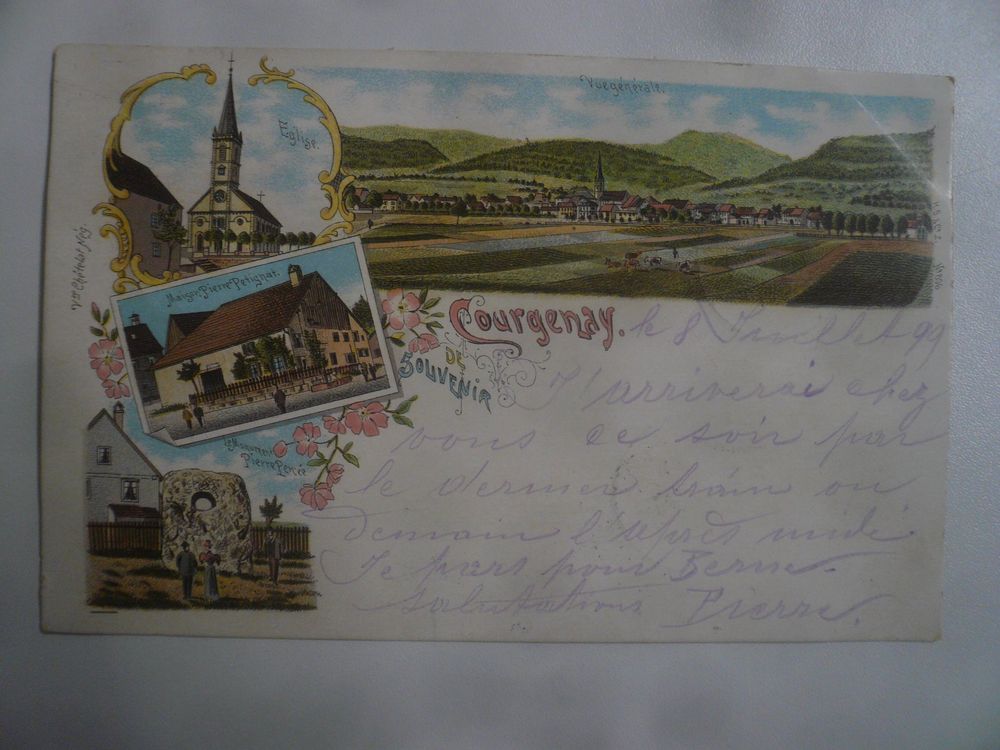 Vue générale.
Eglise.
Maison Pierre Petignat.
Courgenay.
SOUVENIR
DE
Le Monument
Pierre Percée
le 8 Juillet 99
J'arriverai chez
vous ce soir par
le dernier train ou
demain l'après midi
Je pars pour Berne.
Salutations Pierre.